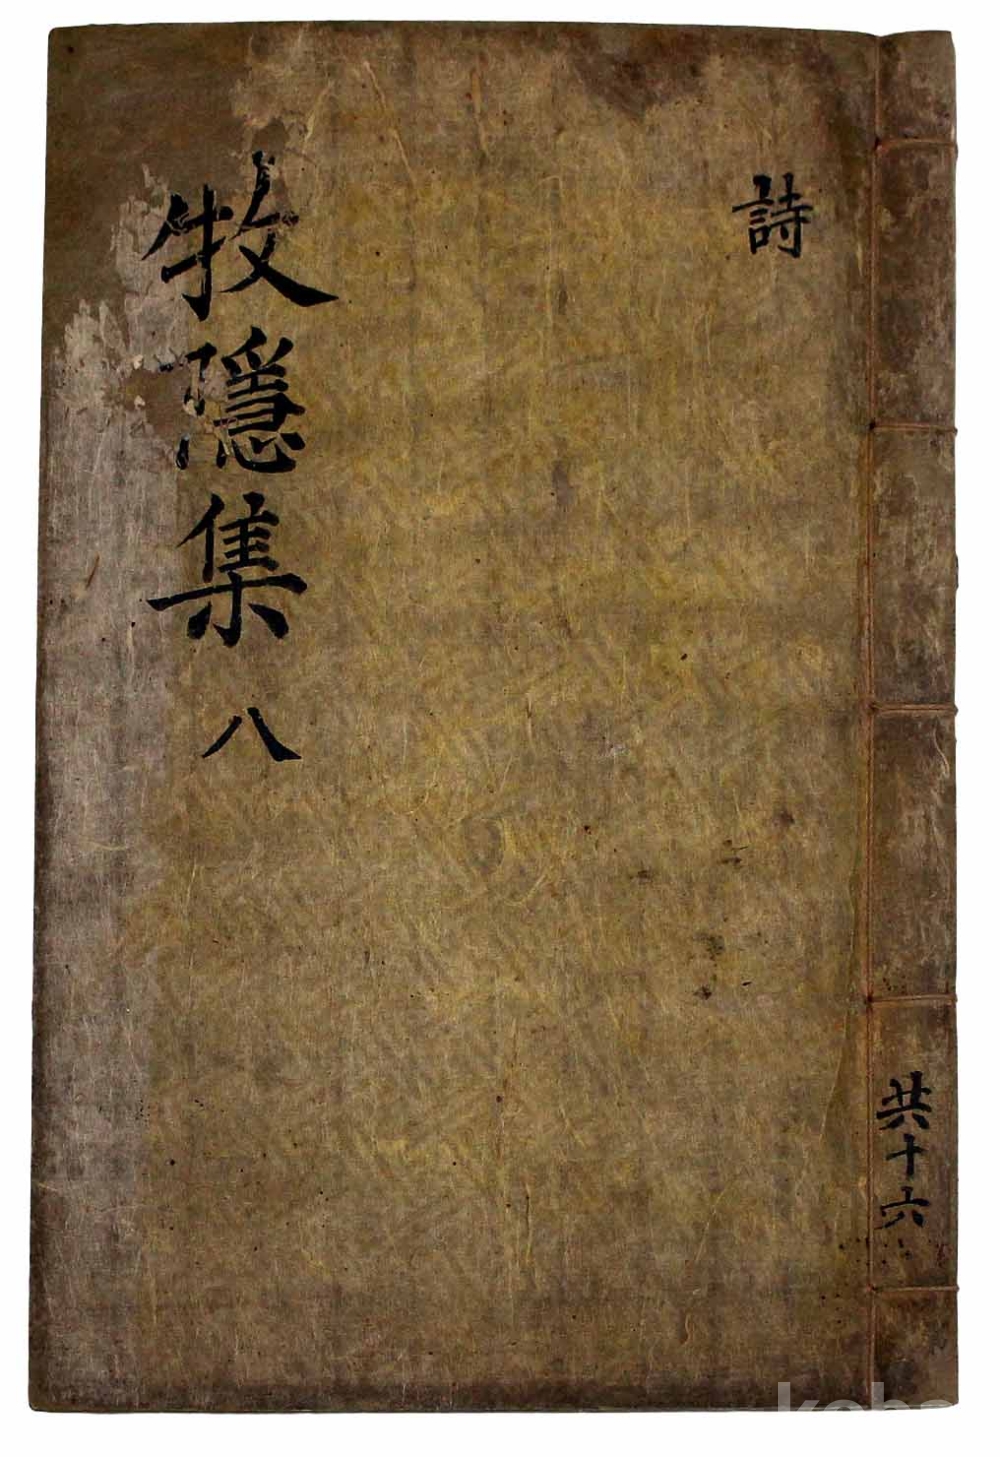 詩
牧隱集 八
共十六